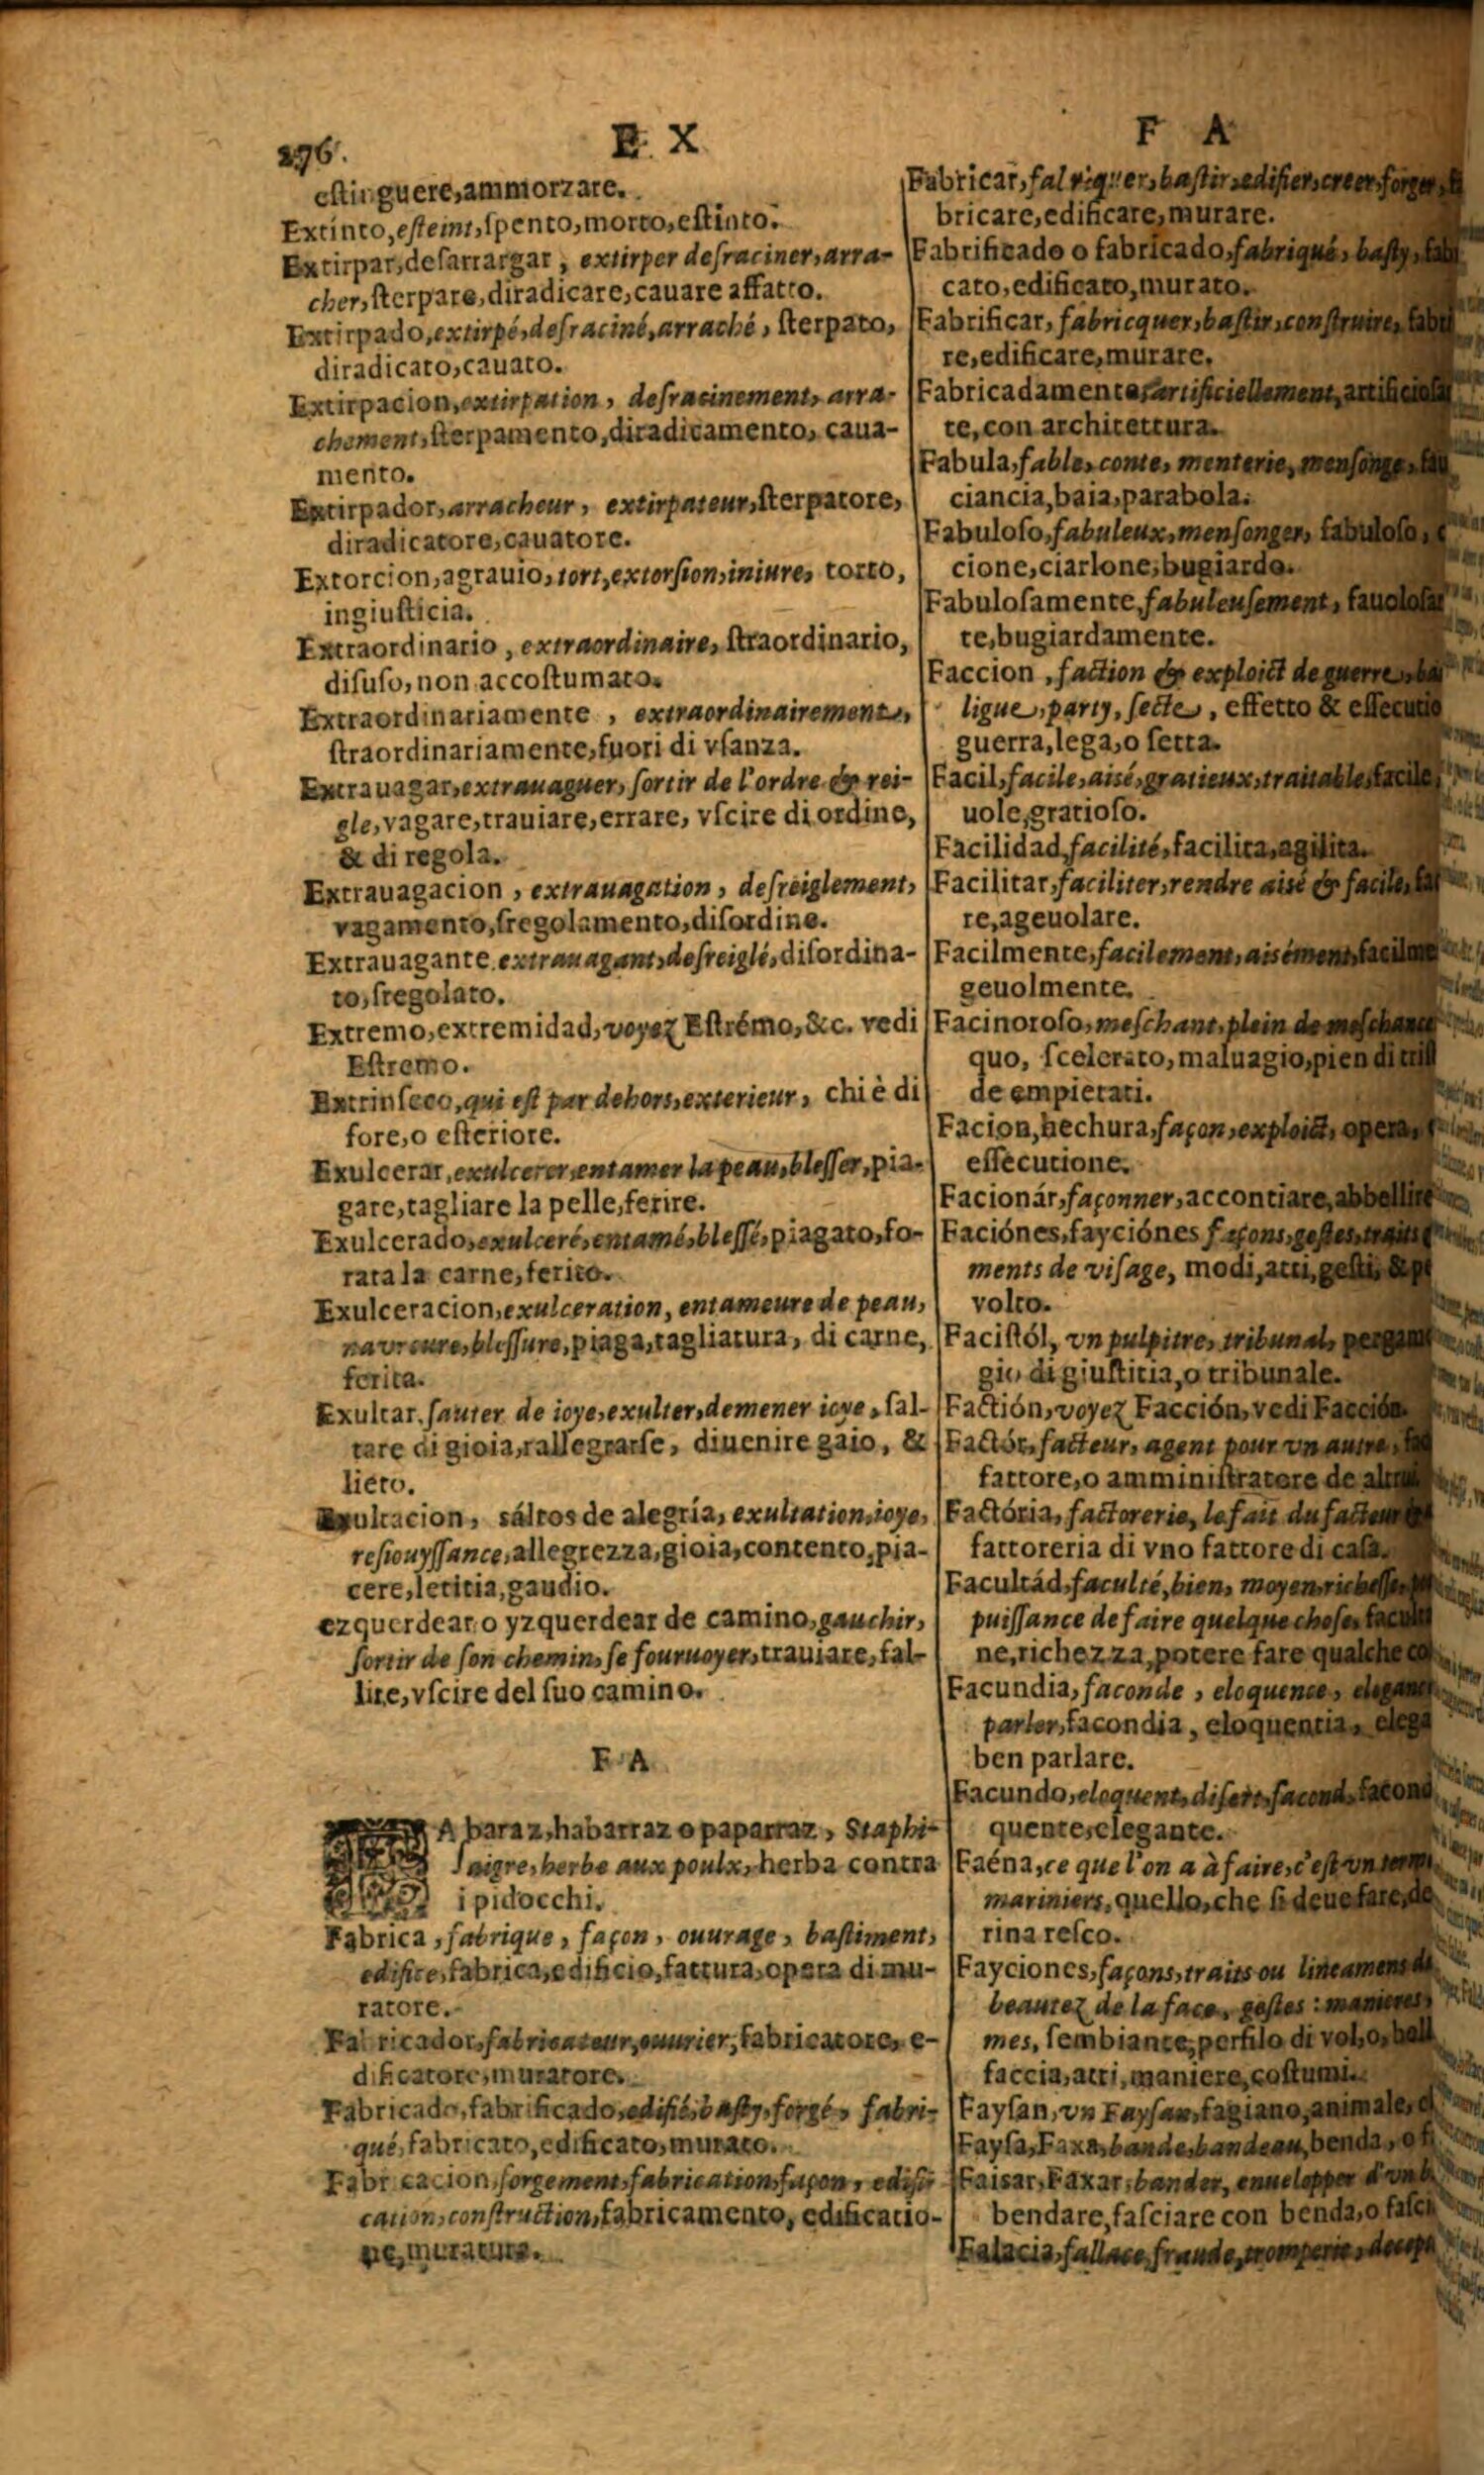 296.
E X
estinguere,ammorzare.
Extínto,esteint,spento,morto,estinto.
Extirpar,desarrargar, extirper desraciner,arra-
cher,sterpare,diradicare,cauare affatto.
Extirpado,extirpé,desraciné,arraché, sterpato,
diradicato,cauato.
Extirpacion,extirpation, desracinement, arra-
chement,sterpamento,diradicamento, caua-
mento.
Extirpador,arracheur, extirpateur,sterpatore,
diradicatore,cauatore.
Extorcion,agrauio,tort,extorsion,iniure, torto,
ingiusticia.
Extraordinario, extraordinaire, straordinario,
disuso,non accostumato.
Extraordinariamente, extraordinairement,
straordinariamente,fuori di vsanza.
Extrauagar,extrauaguer, sortir de l'ordre & rei-
gle,vagare,trauiare,errare, vscire di ordine,
& di regola.
Extrauagacion, extrauagation, desreiglement,
vagamento,sregolamento,disordine.
Extrauagante extrauagant,desreiglé,disordina-
to,sregolato.
Extremo,extremidad,voyez Estrémo,&c. vedi
Estremo.
Extrinseco,qui est par dehors,exterieur, chi è di
fore,o esteriore.
Exulcerar,exulcerer,entamer la peau,blesser,pia-
gare,tagliare la pelle,ferire.
Exulcerado,exulceré,entamé,blessé,piagato,fo-
rata la carne,ferito.
Exulceracion,exulceration, entameure de peau,
navreure,blessure,piaga,tagliatura, di carne,
ferita.
Exultar,sauter de ioye,exulter,demener ioye, sal-
tare di gioia,rallegrarse, diuenire gaio, &
lieto.
Exultacion, sáltos de alegría, exultation,ioye,
resiouyssance,allegrezza,gioia,contento,pia-
cere,letitia,gaudio.
ezquerdear o yzquerdear de camino,gauchir,
sortir de son chemin,se fouruoyer,trauiare,fal-
lire,vscire del suo camino.
F A
FAbaraz,habarraz o paparraz, Staphi-
saigre,herbe aux poulx,herba contra
i pidocchi.
Fabrica, fabrique, façon, ouurage, bastiment,
edifice,fabrica,edificio,fattura,opera di mu-
ratore.
Fabricador,fabricateur,ouurier,fabricatore, e-
dificatore,muratore.
Fabricado,fabrificado,edifié,basty,forgé, fabri-
qué,fabricato,edificato,murato.
Fabricacion,forgement,fabrication,façon, edifi-
cation,construction,fabricamento, edificatio-
ne,muratura.
F A
Fabricar,fabriquer,bastir,edifier,creer,forger,
bricare,edificare,murare.
Fabrificado o fabricado,fabriqué, basty,
cato,edificato,murato.
Fabrificar, fabricquer,bastir,construire,
re,edificare,murare.
Fabricadamente,artificiellement,
te,con architettura.
Fabula,fable,conte, menterie, mensonge,
ciancia,baia,parabola.
Fabuloso,fabuleux,mensonger, fabuloso,
cione,ciarlone,bugiardo.
Fabulosamente,fabuleusement,
te,bugiardamente.
Faccion, faction & exploict de guerre,
ligue,party, secte, effetto &
guerra,lega,o setta.
Facil,facile,aisé,gratieux,traitable,facile,
uole,gratioso.
Facilidad,facilité,facilita,agilita.
Facilitar,faciliter,rendre aisé & facile,
re,ageuolare.
Facilmente,facilement,aisément,
geuolmente.
Facinoroso,meschant,plein de
quo, scelerato,maluagio,pien di
de empietati.
Facion,hechura,façon,exploict, opera,
essecutione.
Facionár,façonner,accontiare,abbellire
Faciónes,fayciónes façons,gestes,traits
ments de visage, modi,atti,gesti,
volto.
Facistól, vn pulpitre, tribunal,
gio di giustitia,o tribunale.
Factión,voyez Facción,vedi Facción.
Factór,facteur, agent pour vn autre,
fattore,o amministratore de
Factória, factorerie, le fait du facteur
fattoreria di vno fattore di casa.
Facultád,faculté,bien, moyen,richesse,
puissance de faire quelque chose,
ne,richezza,potere fare qualche
Facundia,faconde, eloquence,
parler,facondia, eloquentia,
ben parlare.
Facundo,eloquent,disert,facond,
quente,elegante.
Faéna,ce que l'on a à faire,c'est vn
mariniers,quello,che si deue fare,
rina resco.
Fayciones,façons,traits ou lineamens
beautez de la face, gestes: manieres,
mes, sembiante,perfilo di volto,
faccia,atti,maniere,costumi.
Faysan,vn Faysan,fagiano,animale,
Faysa,Faxa,bande,bandeau,benda,
Faisar,Faxar,bander, enuelopper
bendare,fasciare con benda,o
Falacia,fallace,fraude,tromperie,